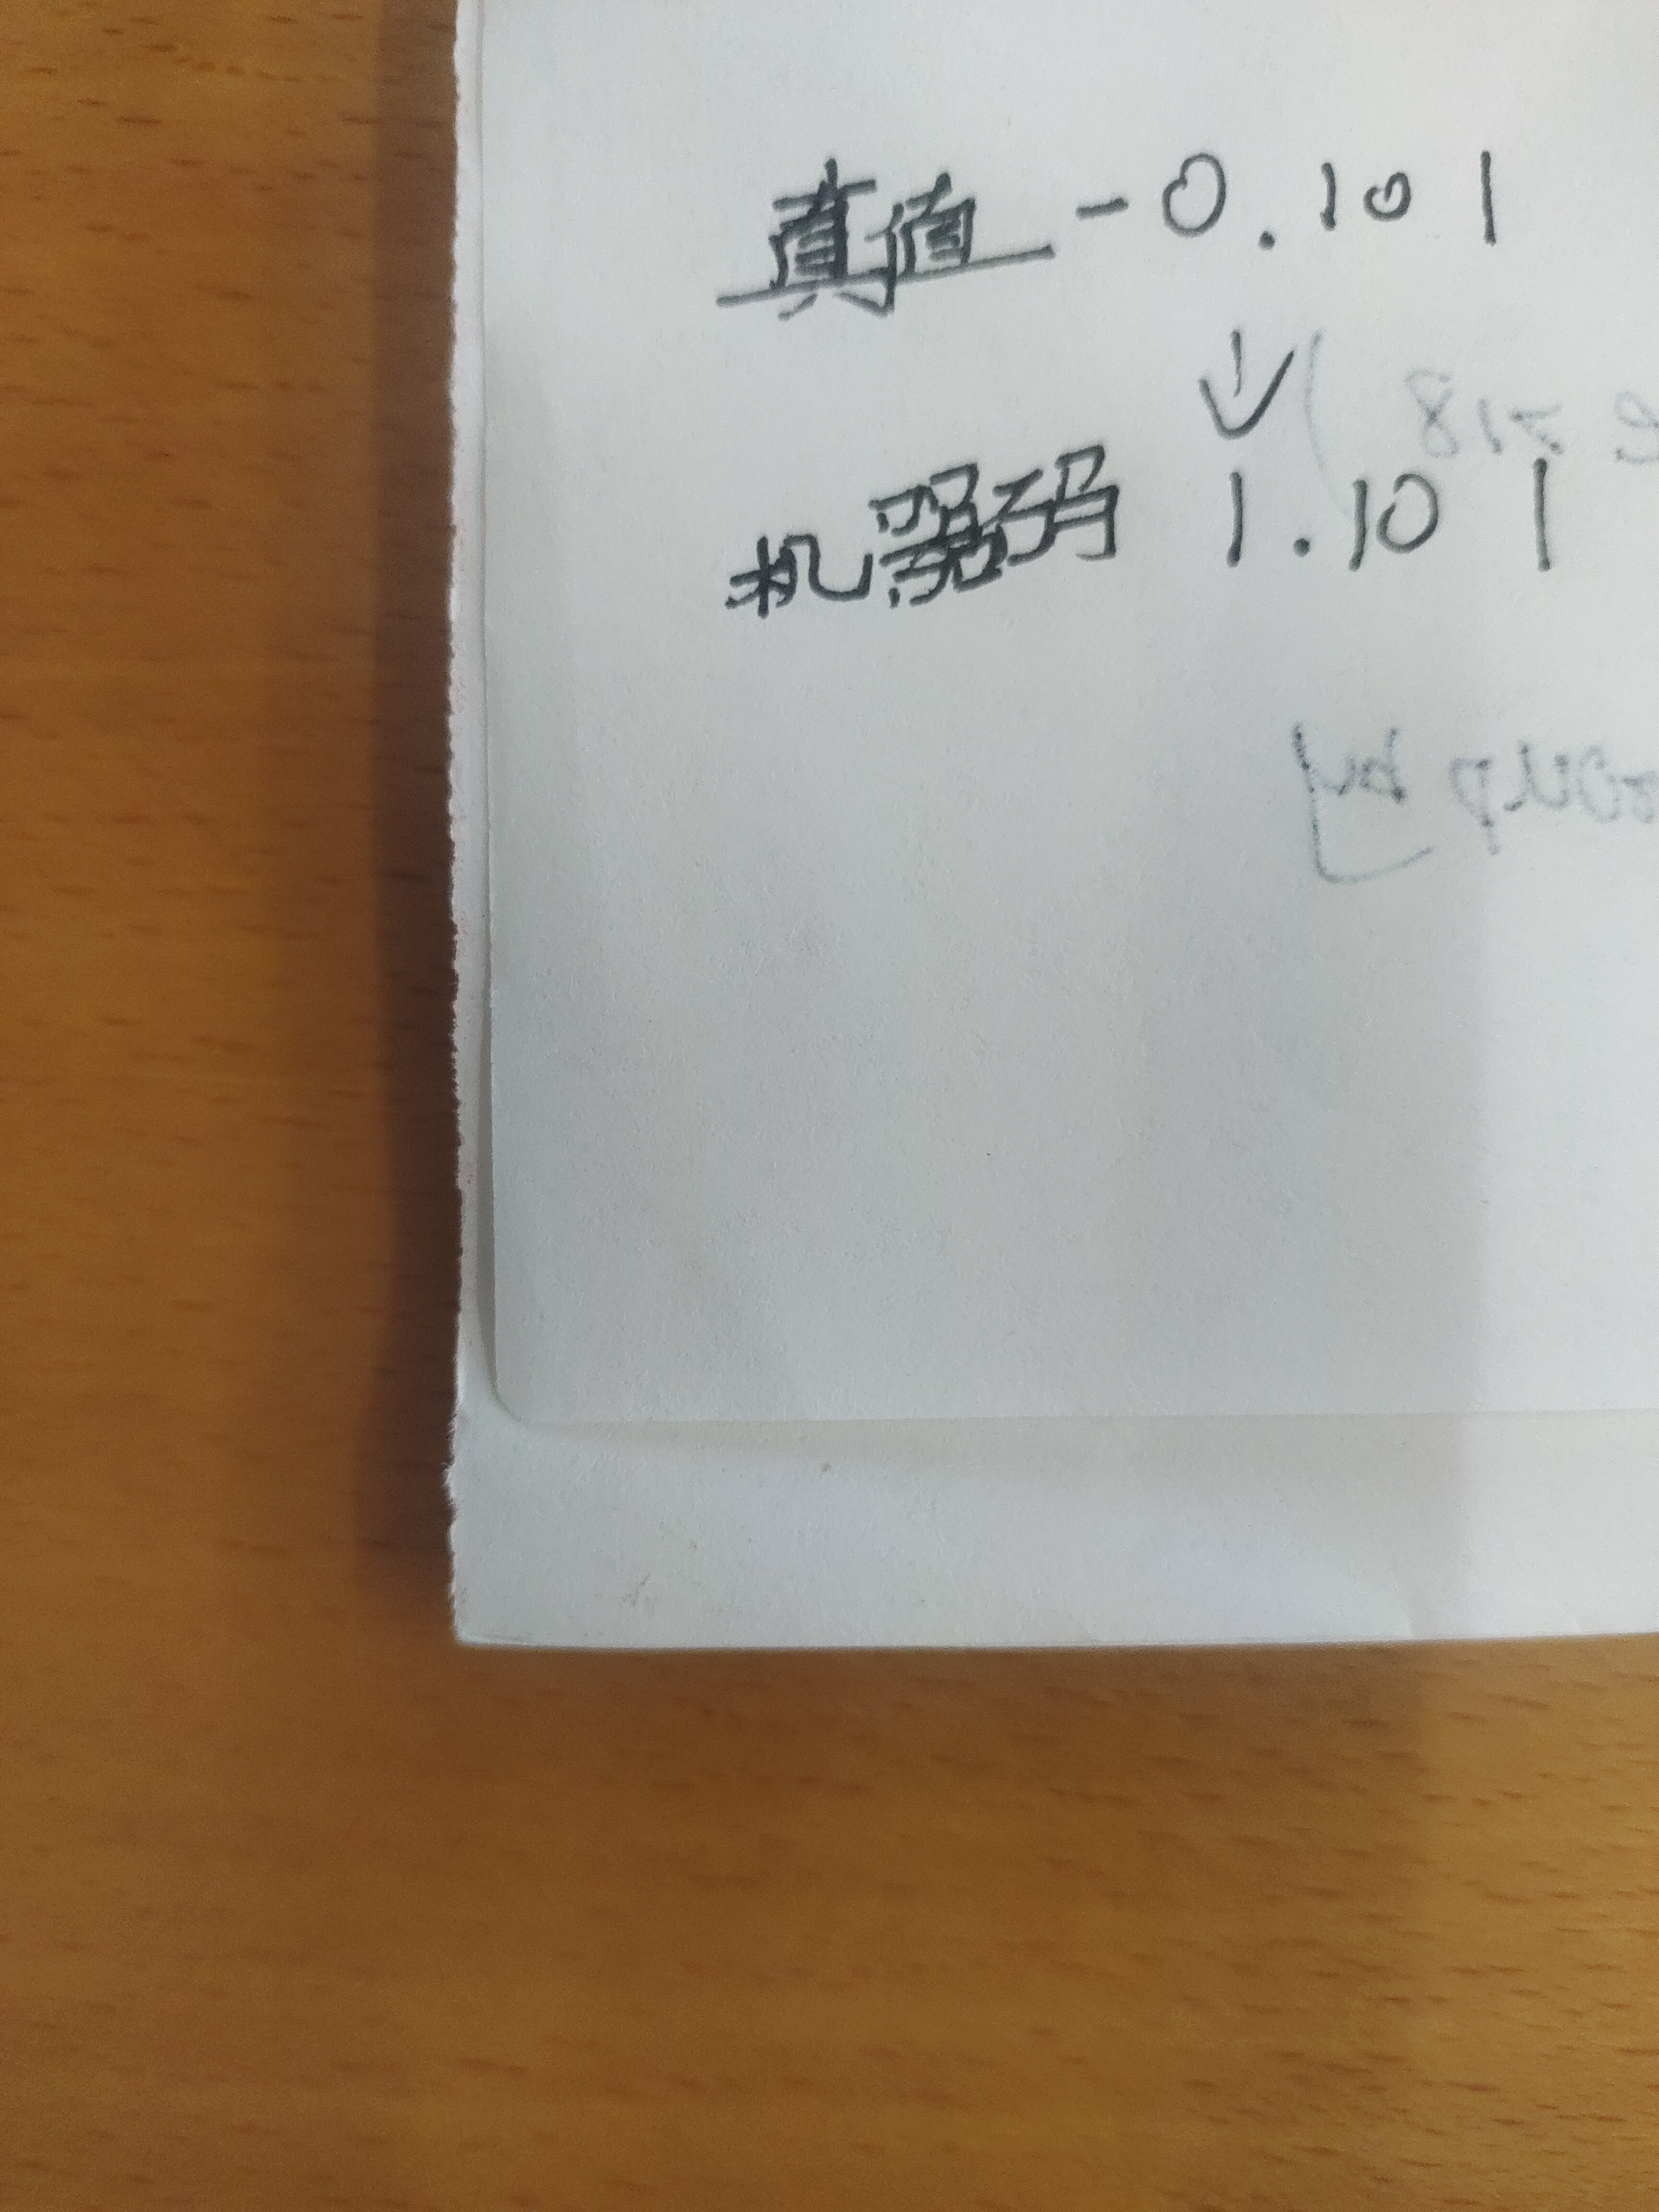 真值 -0.101
↓
机器码 1.101